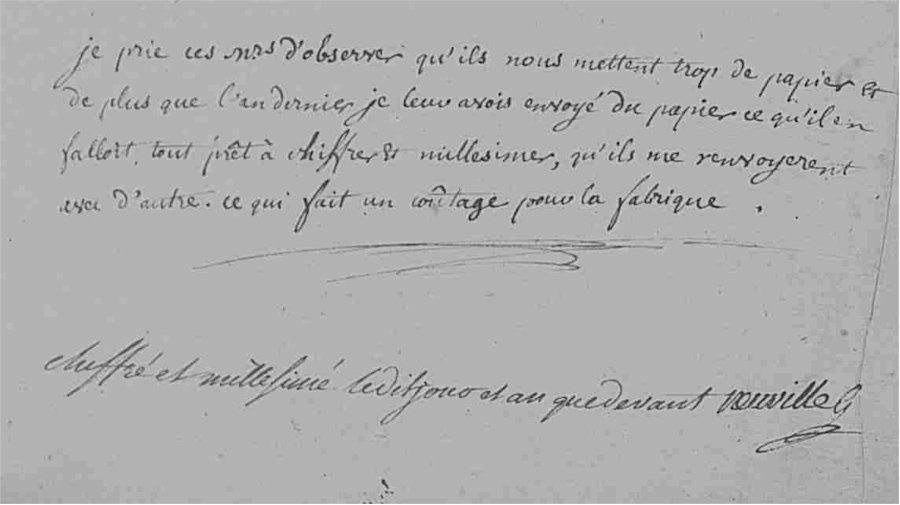 je prie ces mrs d'observer qu'ils nous mettent trop de papier et
de plus que l'an dernier je leur avois envoyé du papier ce qu'il en
falloit, tout prêt à chiffrer et millesimer, qu'ils me renvoyerent
avec d'autre. ce qui fait un coûtage pour la fabrique.
chiffré et millesimé ledit jour et an que devant